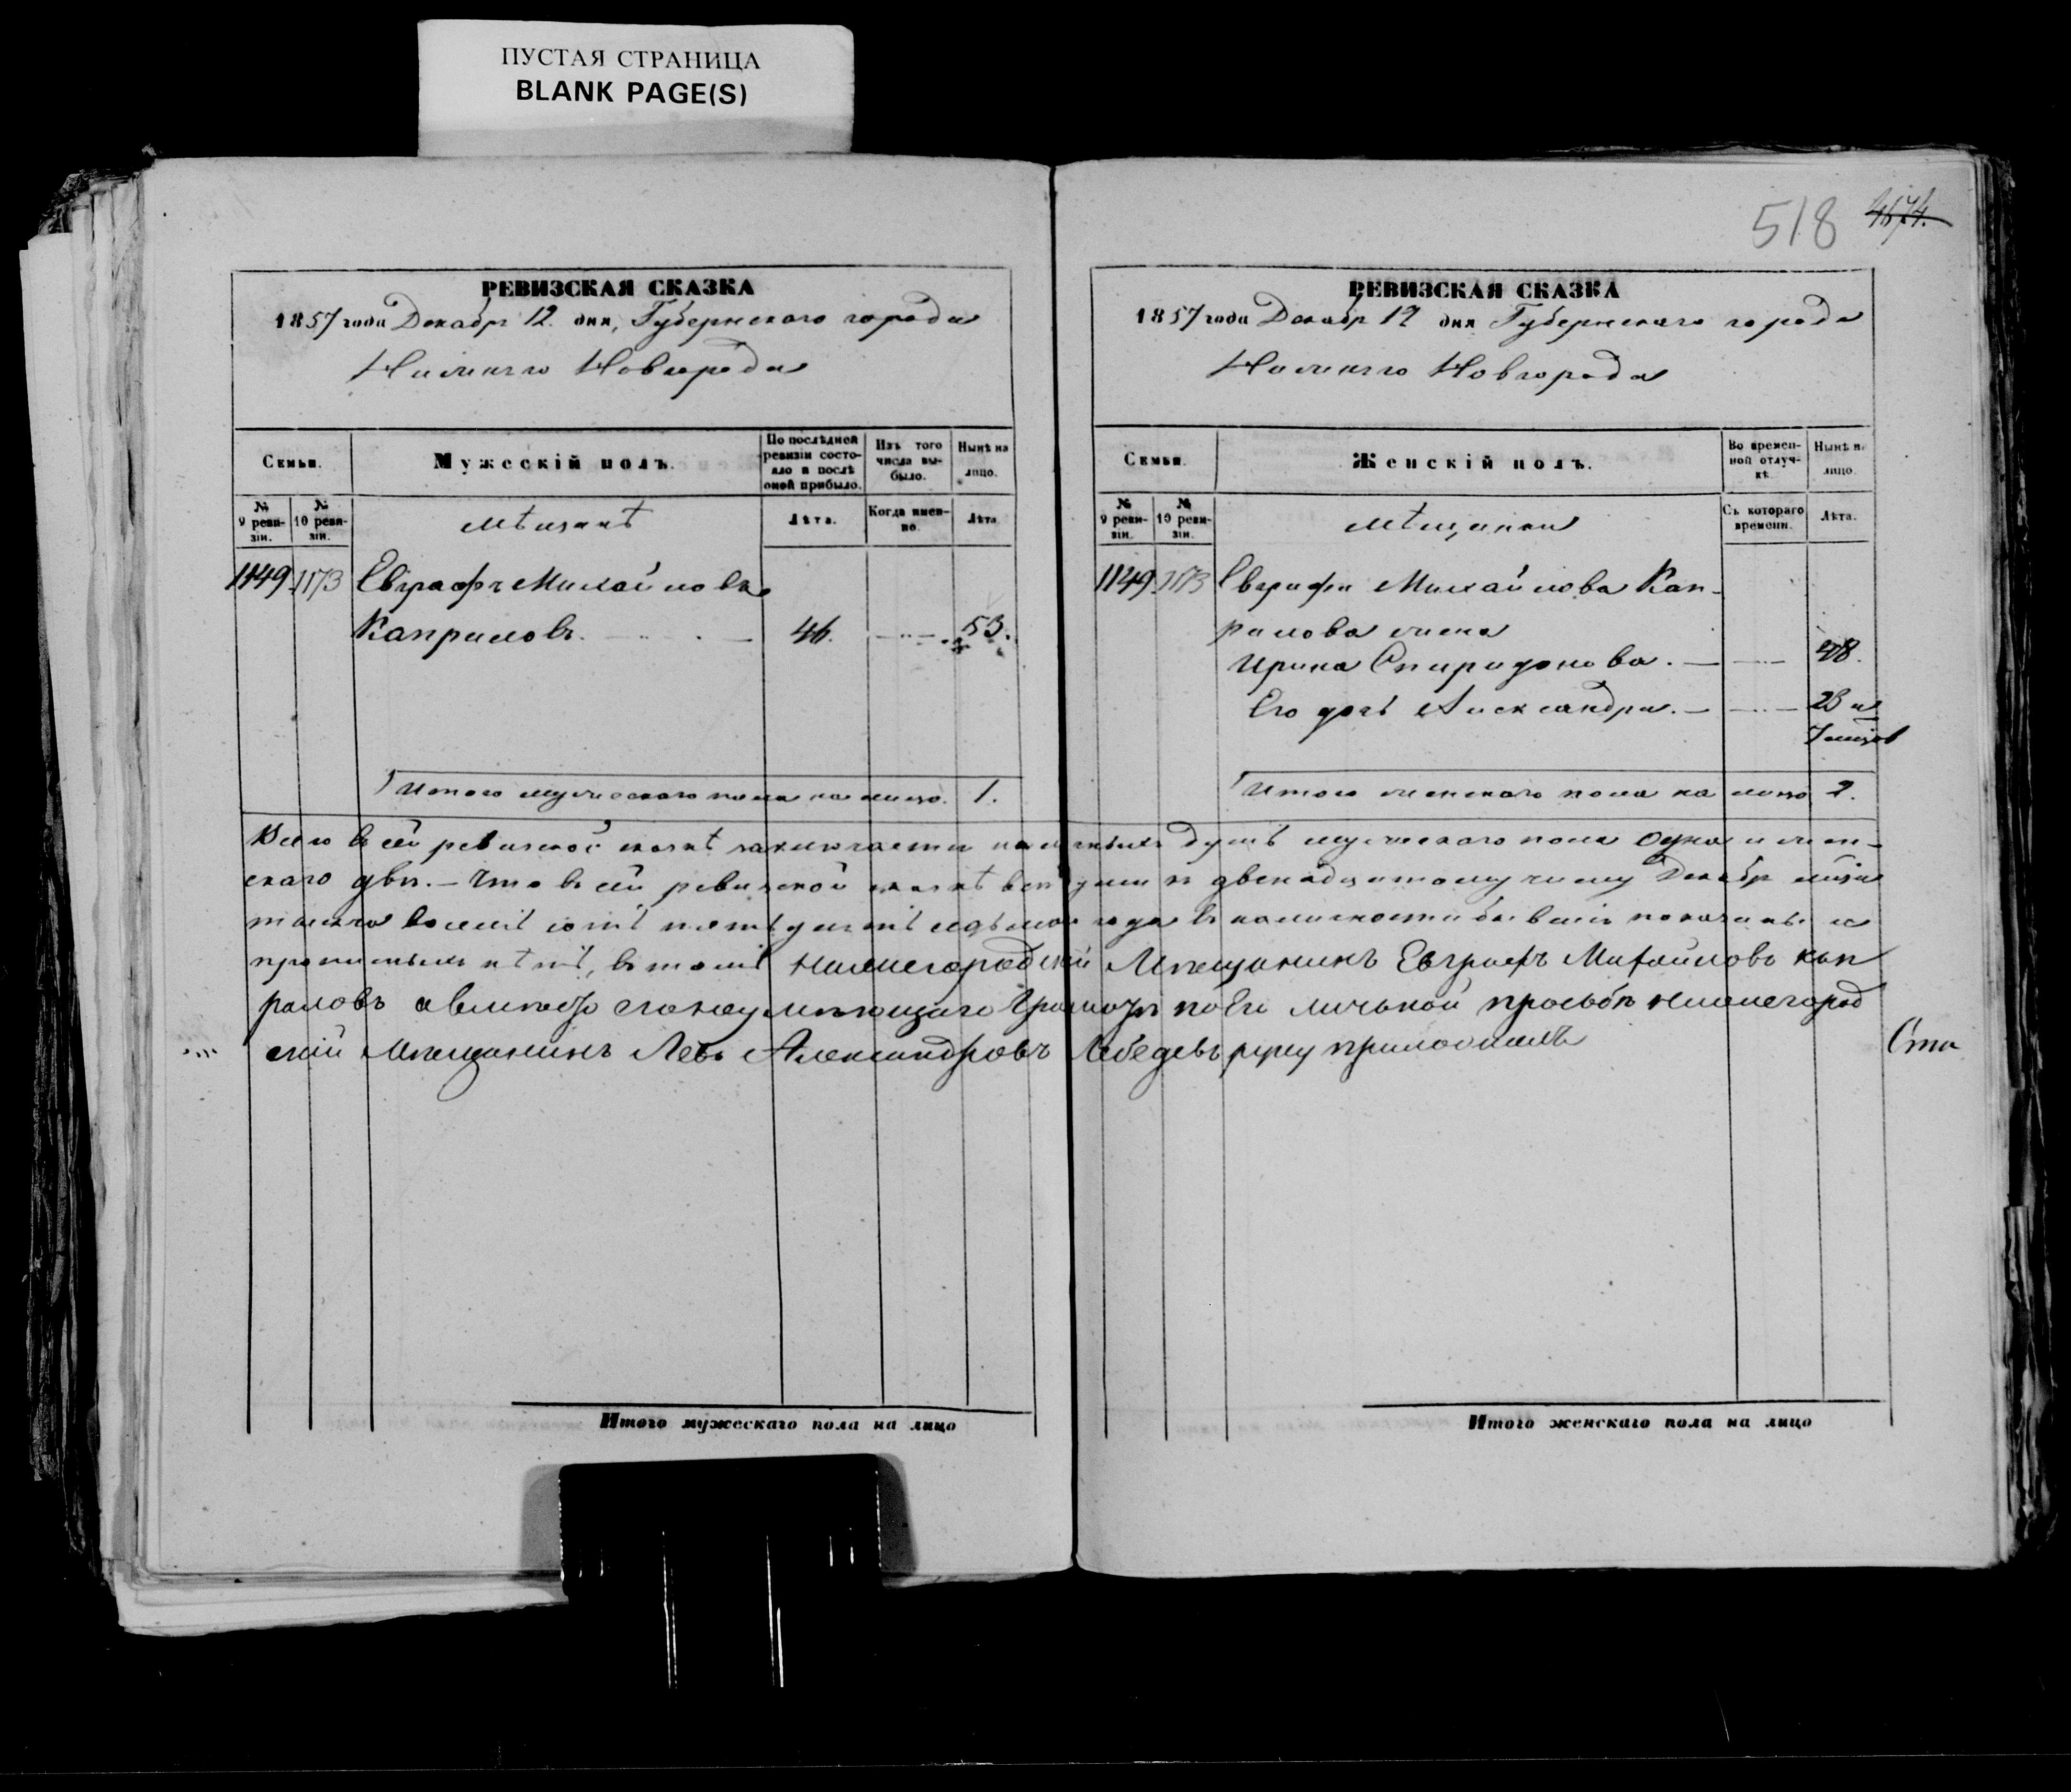 ПУСТАЯ СТРАНИЦА
BLANK PAGE(S)
518 4674.
РЕВИЗСКАЯ СКАЗКА
1857 года Декабр 12. дня, Губернскаго города
Нижняго Новгорода
Семьи.
Мужескій полъ.
По послѣдней ревизіи состояло и послѣ оной прибыло.
Изъ того числа выбыло.
Нынѣ на лицо.
№ 9 ревизіи.
№ 10 ревизіи.
мѣщанѣ
Лѣта.
Когда именно.
Лѣта
1149. 1173 Евграфъ Михайловъ
Капраловъ. 46. 53.
Итого мужескаго пола на лицо. 1.
РЕВИЗСКАЯ СКАЗКА
1857 года Декабр 12 дня Губернскаго города
Нижняго Новгорода
Семьи.
Женскій полъ.
Во временной отлучкѣ.
Нынѣ на лицо.
№ 9 ревизіи.
№ 10 ревизіи.
мѣщанки
Съ котораго времени.
Лѣта.
1149. 1173 Евграфа Михайлова Кап-
ралова жена
Ирина Спиридонова. 48.
Его дочь Александра. 23 и
7 мѣсяц
Итого женскаго пола на лицо 2.
Всего в сей ревизской сказкѣ заключается наличныхъ душъ мужескаго пола одна и жен-
скаго двѣ. – Что в сей ревизской сказкѣ всѣ души к двенадцатому числу Декабр
тысяча восемь сотъ пятьдесятъ седьмаго года в наличности бывшіе показаны и
прописныхъ нѣтъ, в томъ Нижегородский Мѣщанинъ Евграфъ Михайловъ Кап
раловъ а вместо его неумѣющаго Грамоты по Его личьной просьбѣ нижегород
ский Мѣщанинъ Левъ Александровъ Лебедевъ руку приложилъ
Ста
Итого мужескаго пола на лицо
Итого женскаго пола на лицо